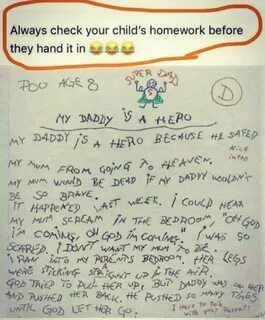 Always check your child's homework before
they hand it in 😂😂😂
POO AGE 8
SUPER DAD
D
MY DADDY iS A HERO
MY DADDY iS A HERO BECAUSE HE SAFED
Nice
intro
MY MUM FROM GOING TO HEAVEN.
MY MUM WOULD BE DEAD IF MY DADDY WOULDN'T
BE SO BRAVE.
IT HAPPENED LAST WEEK. I COULD HEAR
MY MUM SCREAM IN THE BEDROOM "OH GOD
I'M COMING, OH GOD I'M COMING." I WAS SO
SCARED. I DON'T WANT MY MUM TO DIE.
I RAN INTO MY PARENTS BEDROOM. HER LEGS
WERE STICKING STRAIGHT UP IN THE AIR.
GOD TRIED TO PULL HER UP. BUT DADDY WAS ON HER
AND PUSHED HER BACK. HE PUSHED SO MANY TIMES
UNTIL GOD LET HER GO.
I have to talk
with your parents!